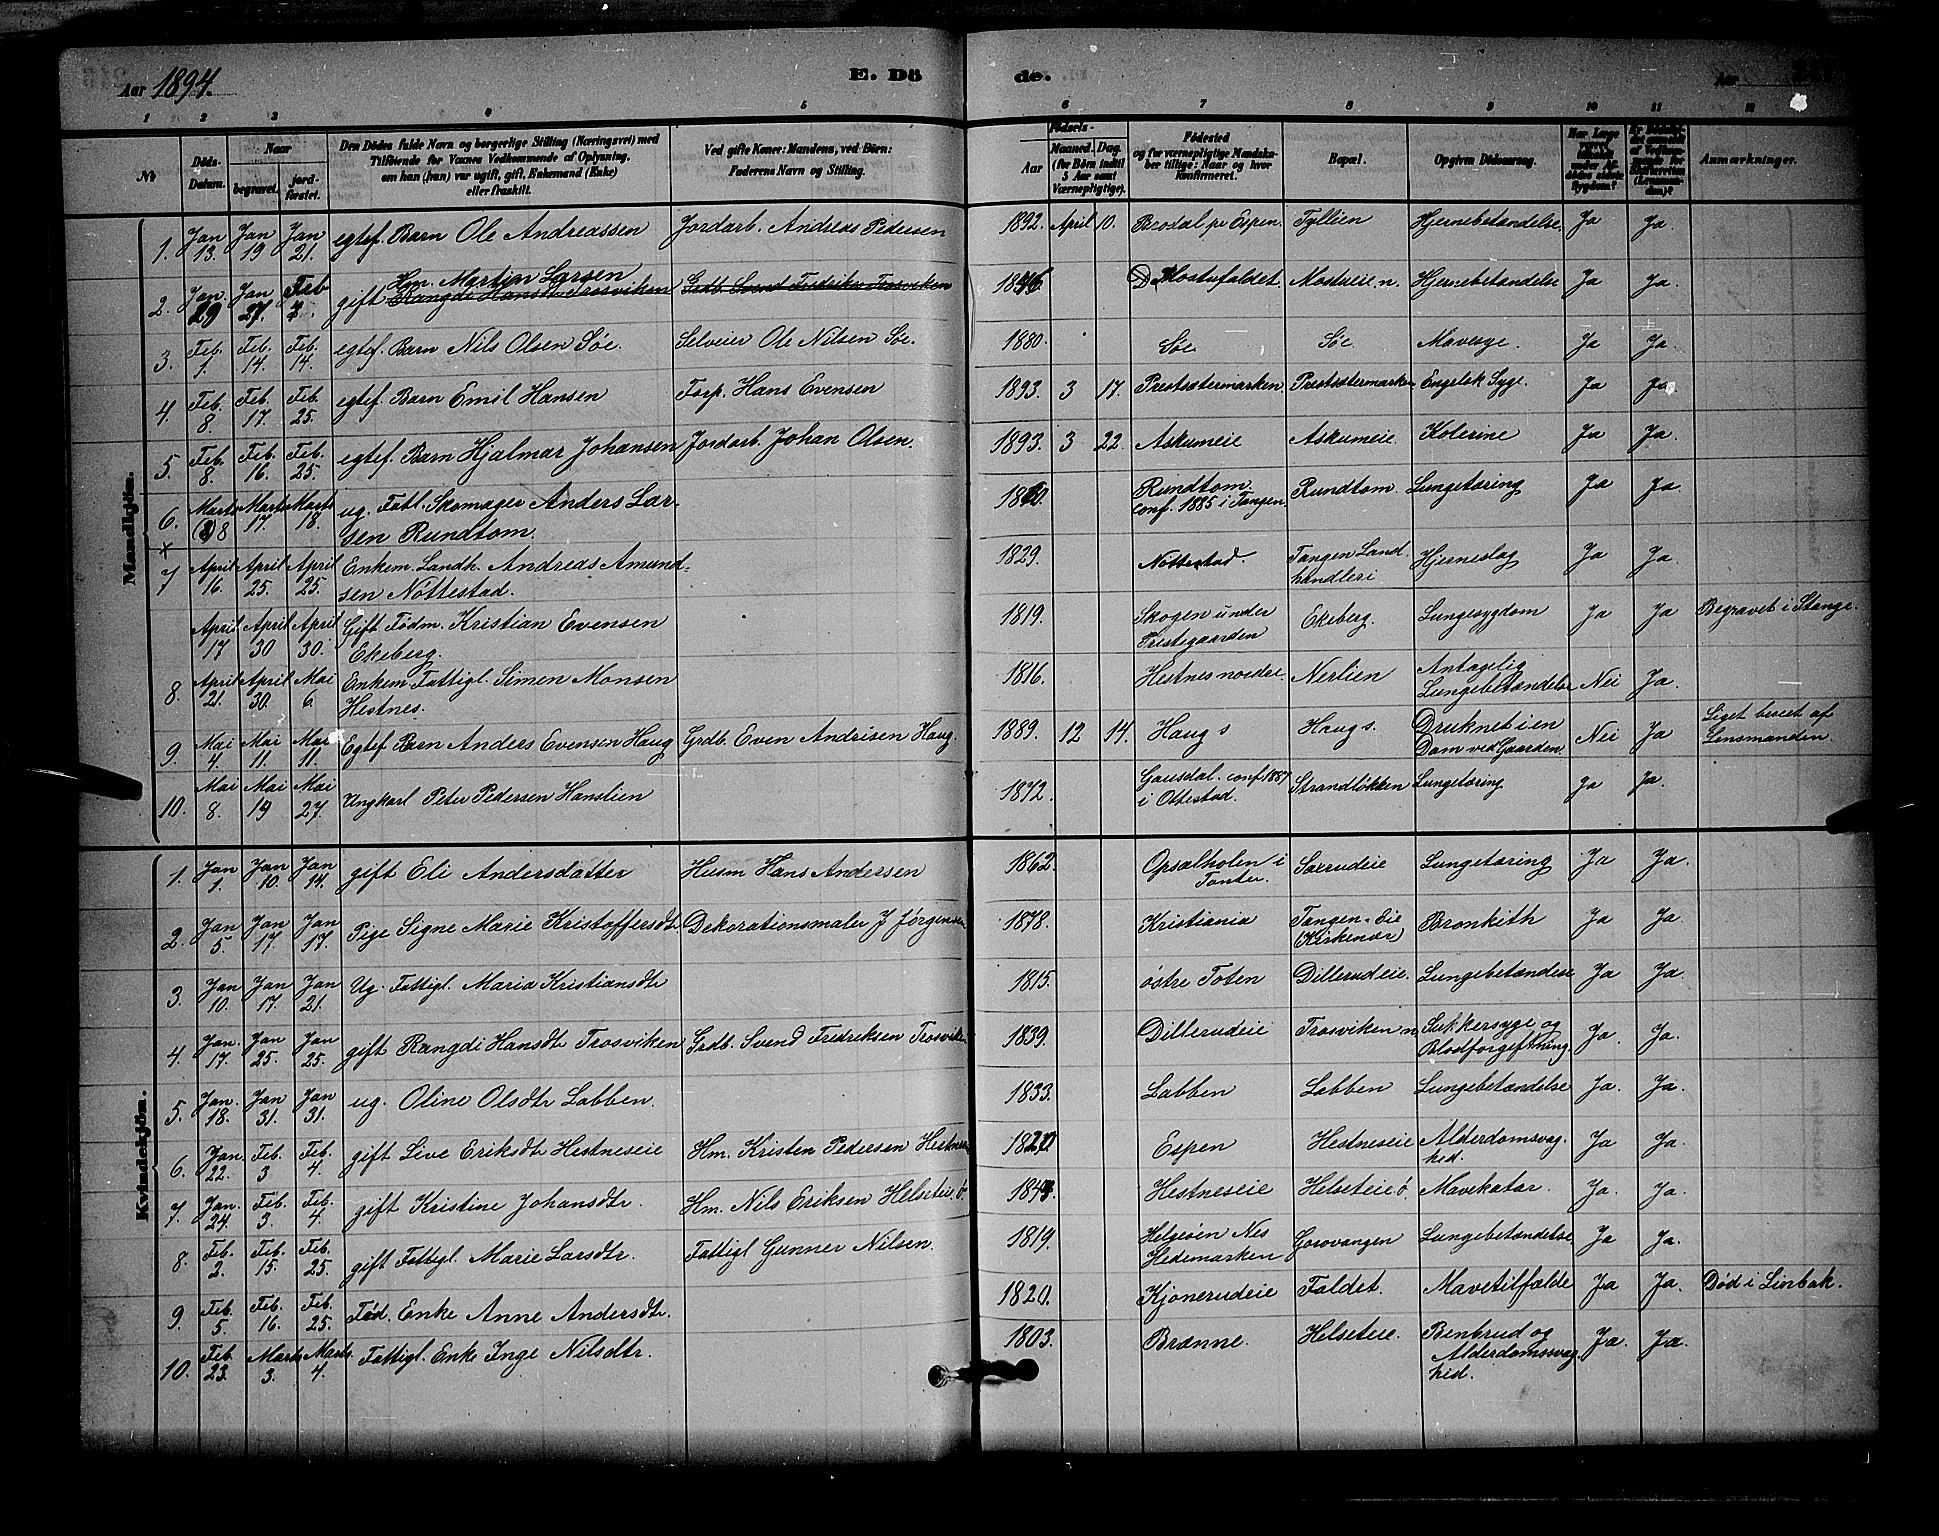 Aar 1894.
E. Dö
de.
Aar
1 2 3 4 5 6 7 8 9 10 11 12
№
Döds-Datum.
Naar
begravet.
jord-fæstet.
Den Dödes fulde Navn og borgerlige Stilling (Næringsvei) med
Tilföiende for Voxnes Vedkommende af Oplysning,
om han (hun) var ugift, gift, Enkemand (Enke)
eller fraskilt.
Ved gifte Koner: Mandens, ved Börn:
Faderens Navn og Stilling.
Födsels-
Aar
Maaned. Dag.
(for Börn indtil
5 Aar samt
Værnepligtige).
Födested
og for værnepligtige Mandska-
ber tillige: Naar og hvor
konfirmeret.
Bopæl.
Opgiven Dödsaarsag.
Anmærkninger.
Mandkjön.
1. Jan 13. Jan 19 Jan 21. egtef. Barn Ole Andreassen Jordarb. Andreas Pedersen 1892. April 10. Brodal pr Espen Tyllien Hjernebetændelse. Ja Ja.
2. Jan 29 Jan 27. Feb 3. gift Hm. Martin Larsen
Rangdi Hansdt Trosviken Grdb. Svend Fredriksen Trosviken 1846 Kostufaldet Mostueie n. Hjernebetændelse Ja Ja.
3. Feb. 1. Feb. 14. Feb. 14. egtef. Barn Nils Olsen Søe. Selveier Ole Nilsen Søe. 1880. Søe Søe Mavesyge. Ja Ja.
4. Feb. 8 Feb. 17. Feb. 25. egtef. Barn Emil Hansen Forp. Hans Evensen 1893. 3 17. Prestsætermarken Prestsætermarken Engelsk Syge. Ja Ja
5 Feb. 8 Feb. 16. Feb. 25. egtef. Barn Hjalmar Johansen Jordarb. Johan Olsen. 1893. 3 22. Askumeie Askumeie Kolerine Ja Ja.
6. Marts 8 Marts 17. Marts 18. ug. Fatl. Skomager Anders Lar-
sen Rundtom. 1860. Rundtom.
conf. 1885 i Tangen. Rundtom. Lungetæring Ja Ja
x
7 April 16. April 25. April 25. Enkem. Landh. Andreas Amund-
sen Nottestad. 1829. Nottestad. Tangen Land-
handleri Hjerneslag Ja Ja.
April 17 April 30 April 30. Gift Fødm. Kristian Evensen
Ekeberg. 1819. Skogen under
Prestegaarden Ekeberg. Lungesygdom Ja Ja Begravet i Stange.
8. April 21. April 30. Mai 6. Enkem. Fattigl. Simen Monsen
Hestnes. 1816. Hestnes nordre Nerlien Antagelig
Lungebetændelse Nei Ja.
9. Mai 4. Mai 11. Mai 11. Egtef Barn Anders Evensen Haug Grdb. Even Andrisen Haug. 1889. 12 14. Haug s Haug s. Druknet i en
Dam ved Gaarden. Nei Ja Liget beseet af
Lensmanden.
10. Mai 8. Mai 19 Mai 27. Ungkarl Peter Pedersen Hanslien 1872. Gausdal. conf 1887
i Ottestad. Strandløkken Lungetæring Ja Ja.
Kvindekjön.
1. Jan 1. Jan 10. Jan 14. gift Eli Andersdatter Husm Hans Andersen 1862. Opsalholen i
Tonter. Sørudeie Lungetæring Ja Ja.
2. Jan 5. Jan 17. Jan 17. Pige Signe Marie Kristoffersdtr Dekorationsmaler J Jørgensen 1878. Kristiania Tangen-Eie
(Kirkenær) Bronkith Ja Ja.
3. Jan 10. Jan 17. Jan 21. Ug. Fattigl. Maria Kristiansdtr 1815. østre Toten Dillerudeie. Lungebetændelse Ja Ja.
4. Jan. 17. Jan 25. Jan 25. gift Rangdi Hansdtr Trosviken Grdb. Svend Fredriksen Trosviken 1839. Dillerudeie Trosviken n Sukkersyge og
Blodforgeftning. Ja. Ja.
5. Jan. 18. Jan 31. Jan 31. ug. Oline Olsdtr Labben. 1833. Labben Labben Lungebetændelse Ja. Ja.
6. Jan. 22. Feb. 3 Feb. 4. gift Live Eriksdtr Hestneseie Hm. Kristen Pedersen Hestneseie 1820 Espen Hestneseie Alderdomsvag-
hed. Ja Ja.
7. Jan. 24. Feb. 3. Feb. 4. gift Kristine Johansdtr. Hm. Nils Eriksen Helseteie ø. 1844. Hestneseie Helseteie ø. Mavekatar. Ja. Ja.
8. Feb. 2. Feb. 15. Feb. 25. gift Fattigl. Marie Larsdtr. Fattigl Gunner Nilsen. 1819. Helgøen Nes
Hedemarken Gorovangen Lungebetændelse Ja Ja.
9. Feb. 5. Feb. 16. Feb. 25. Fød. Enke Anne Andersdtr. 1820. Kjonerudeie Faldet. Mavetilfælde Ja Ja. Død i Linbak.
10. Feb. 23. Marts 3. Marts 4. Fattigl. Enke Inge Nilsdtr. 1803. Brænne. Helseteie. Benbrud og
Alderdomssvag-
hed. Ja. Ja.